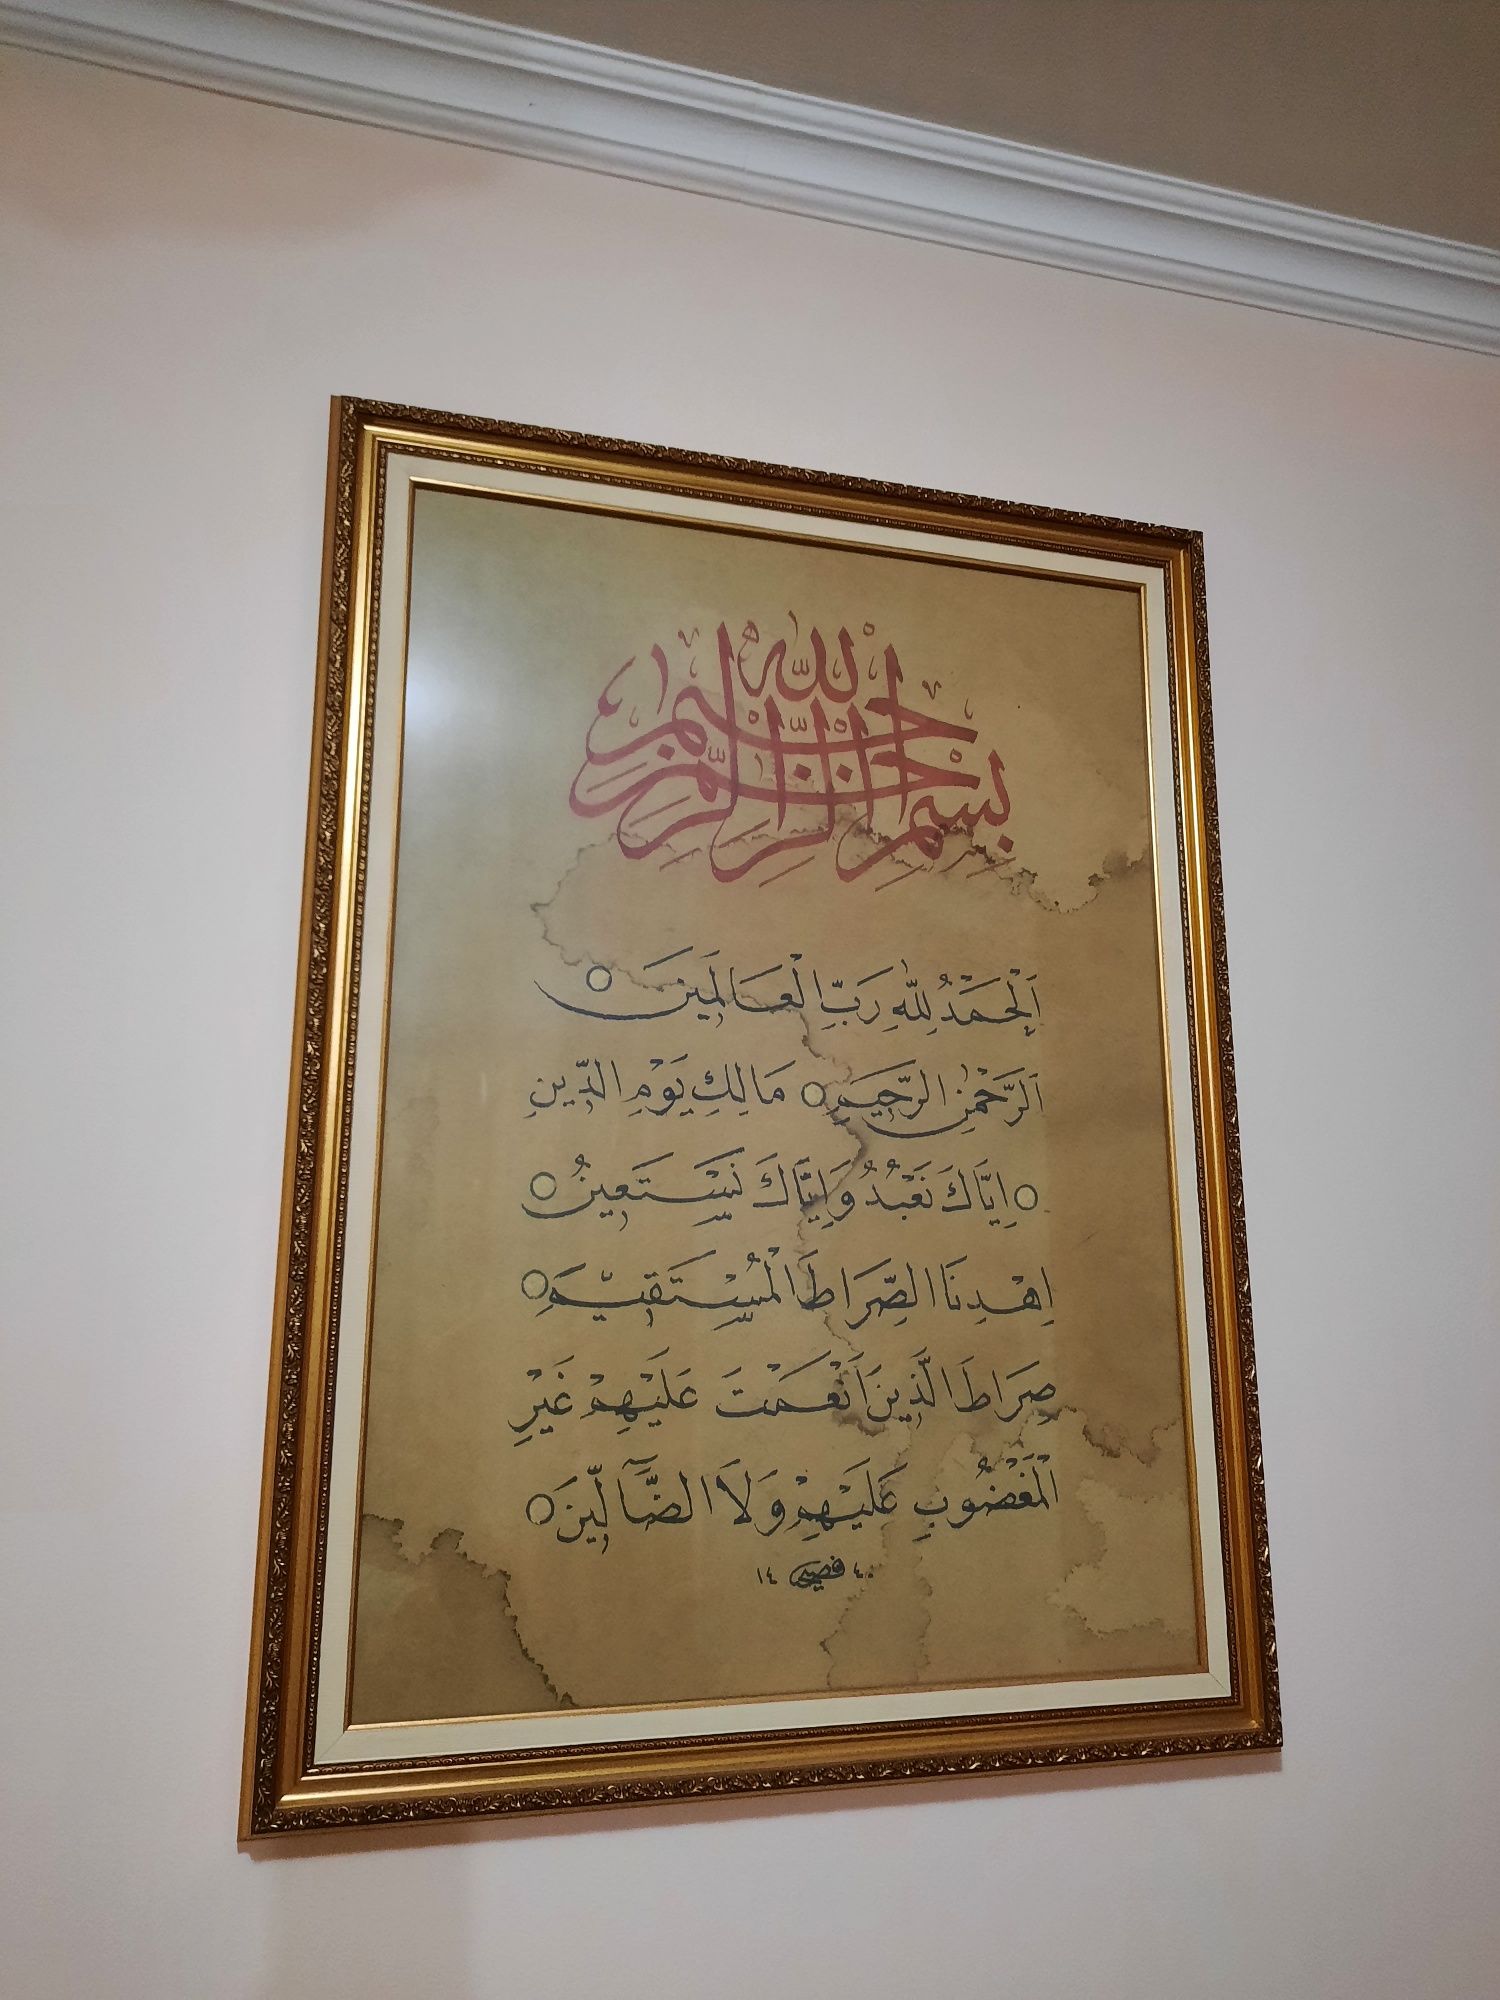 بسم الله الرحمن الرحيم
اَلْحَمْدُ لِلّٰهِ رَبِّ الْعَالَمِينَ ○
اَلرَّحْمٰنِ الرَّحِيمِ ○ مَالِكِ يَوْمِ الدِّينِ
○ اِيَّاكَ نَعْبُدُ وَاِيَّاكَ نَسْتَعِينُ ○
اِهْدِنَا الصِّرَاطَ الْمُسْتَقِيمَ ○
صِرَاطَ الَّذِينَ اَنْعَمْتَ عَلَيْهِمْ غَيْرِ
الْمَغْضُوبِ عَلَيْهِمْ وَلَا الضَّالِّينَ ○
١٤ ٤٠